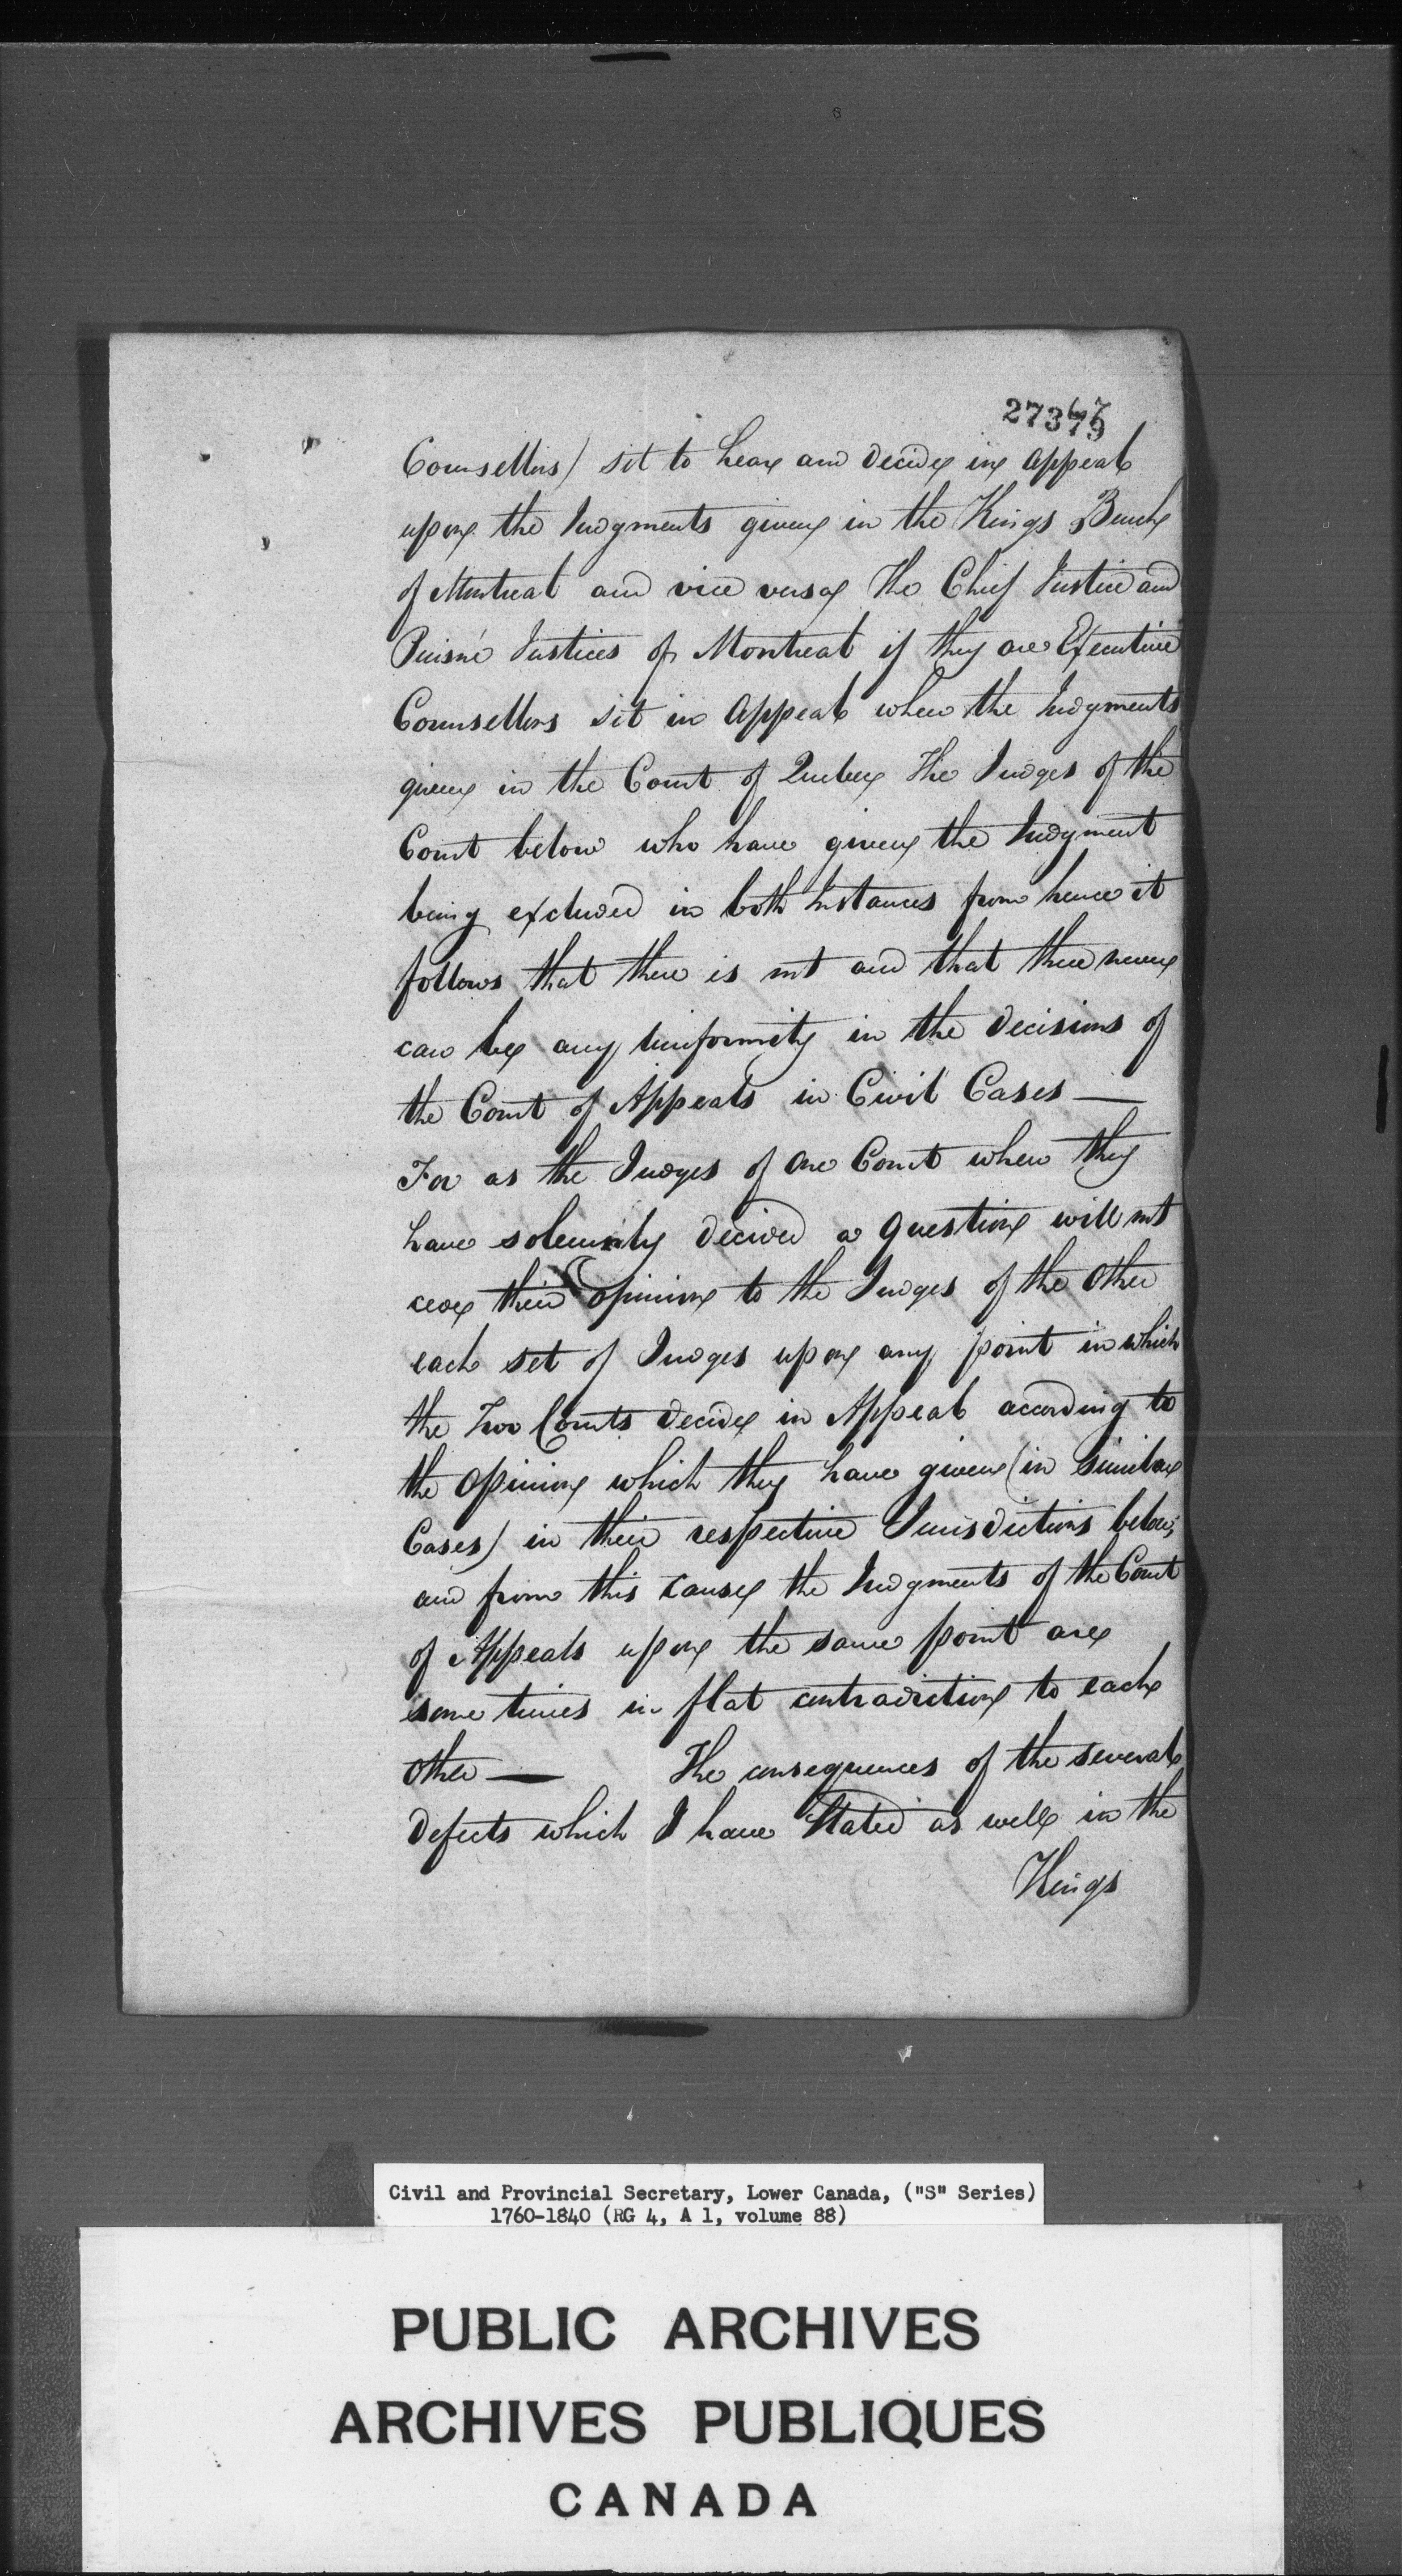 Counsellors) sit to hear and decide in appeal
upon the Judgments given in the Kings Bench
of Montreal and vice versa The Chief Justice and
Puisné Justices of Montreal if they are Executive
Counsellors sit in Appeal when the Judgments
given in the Court of Quebec The Judges of the
Court below who have given the Judgment
being excluded in both Instances from hence it
follows that there is not and that there never
can be any uniformity in the decisions of
the Court of Appeals in Civil Cases —
For as the Judges of one Court when they
have solemnly decided a question will not
cede their opinion to the Judges of the Other
each set of Judges upon any point in which
the Two Courts decide in Appeal according to
the Opinion which they have given (in similar
Cases) in their respective Jurisdictions below,
and from this cause the Judgments of the Court
of Appeals upon the same point are
some times in flat contradiction to each
other — The consequences of the several
defects which I have Stated as well in the
Kings
Civil and Provincial Secretary, Lower Canada, ("S" Series)
1760-1840 (RG 4, A 1, volume 88)
PUBLIC ARCHIVES
ARCHIVES PUBLIQUES
CANADA